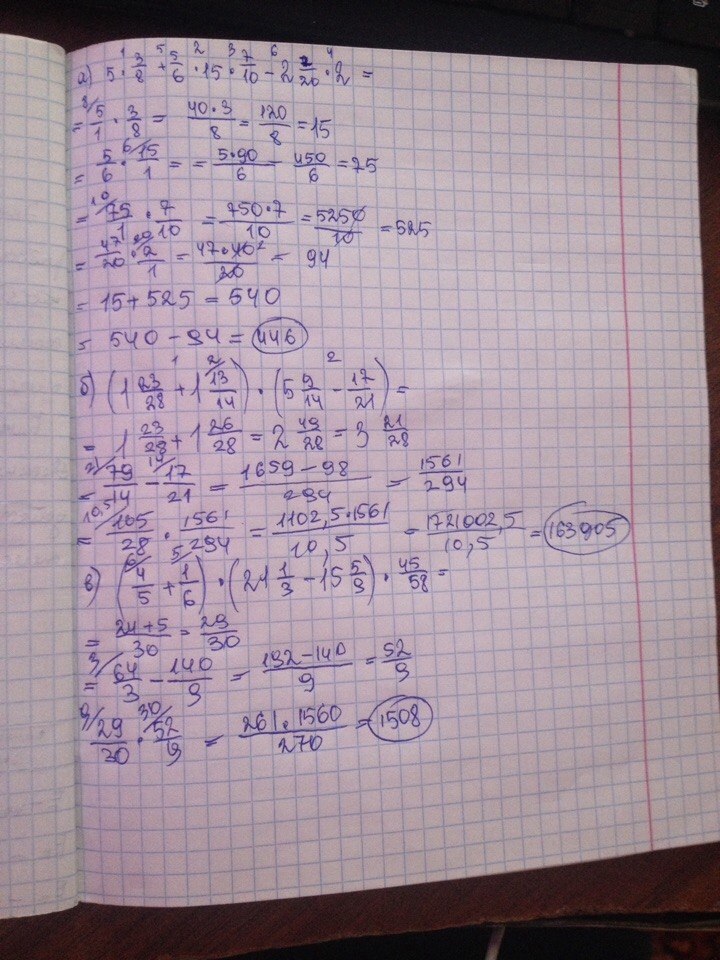 а) 5 · 3/8 + 5/6 · 15 · 7/10 − 2 7/20 · 2 =
= 5/1 · 3/8 = 40·3/8 = 120/8 = 15
= 5/6 · 15/1 = = 5·90/6 − 450/6 = 75
= 75/1 · 7/10 = 750·7/10 = 5250/10 = 525
= 47/20 · 2/1 = 47·40/20 = 94
= 15 + 525 = 540
= 540 − 94 = 446
б) (1 23/28 + 1 13/14) · (5 9/14 − 17/21) =
= 1 23/28 + 1 26/28 = 2 49/28 = 3 21/28
= 79/14 − 17/21 = 1659−98/294 = 1561/294
= 105/28 · 1561/294 = 1102,5·1561/10,5 = 1721002,5/10,5 = 163905
в) (4/5 + 1/6) · (21 1/3 − 15 5/9) · 45/58 =
= 24+5/30 = 29/30
= 64/3 − 140/9 = 192−140/9 = 52/9
29/30 · 52/9 = 261·1560/270 = 1508